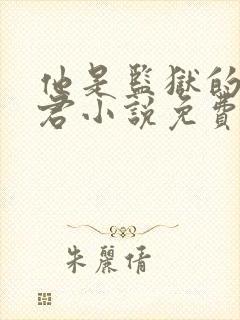 他是監獄的
君小說免費
朱麗倩